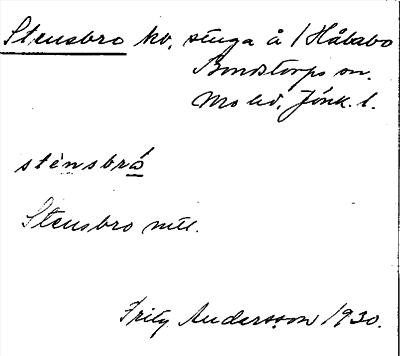 Stensbro kv, stuga å 1 Håbabo
Bondstorps sn.
Mo hd, Jönk. l.
stènsbrá
Stensbro mtl.
Fritz Andersson 1930.